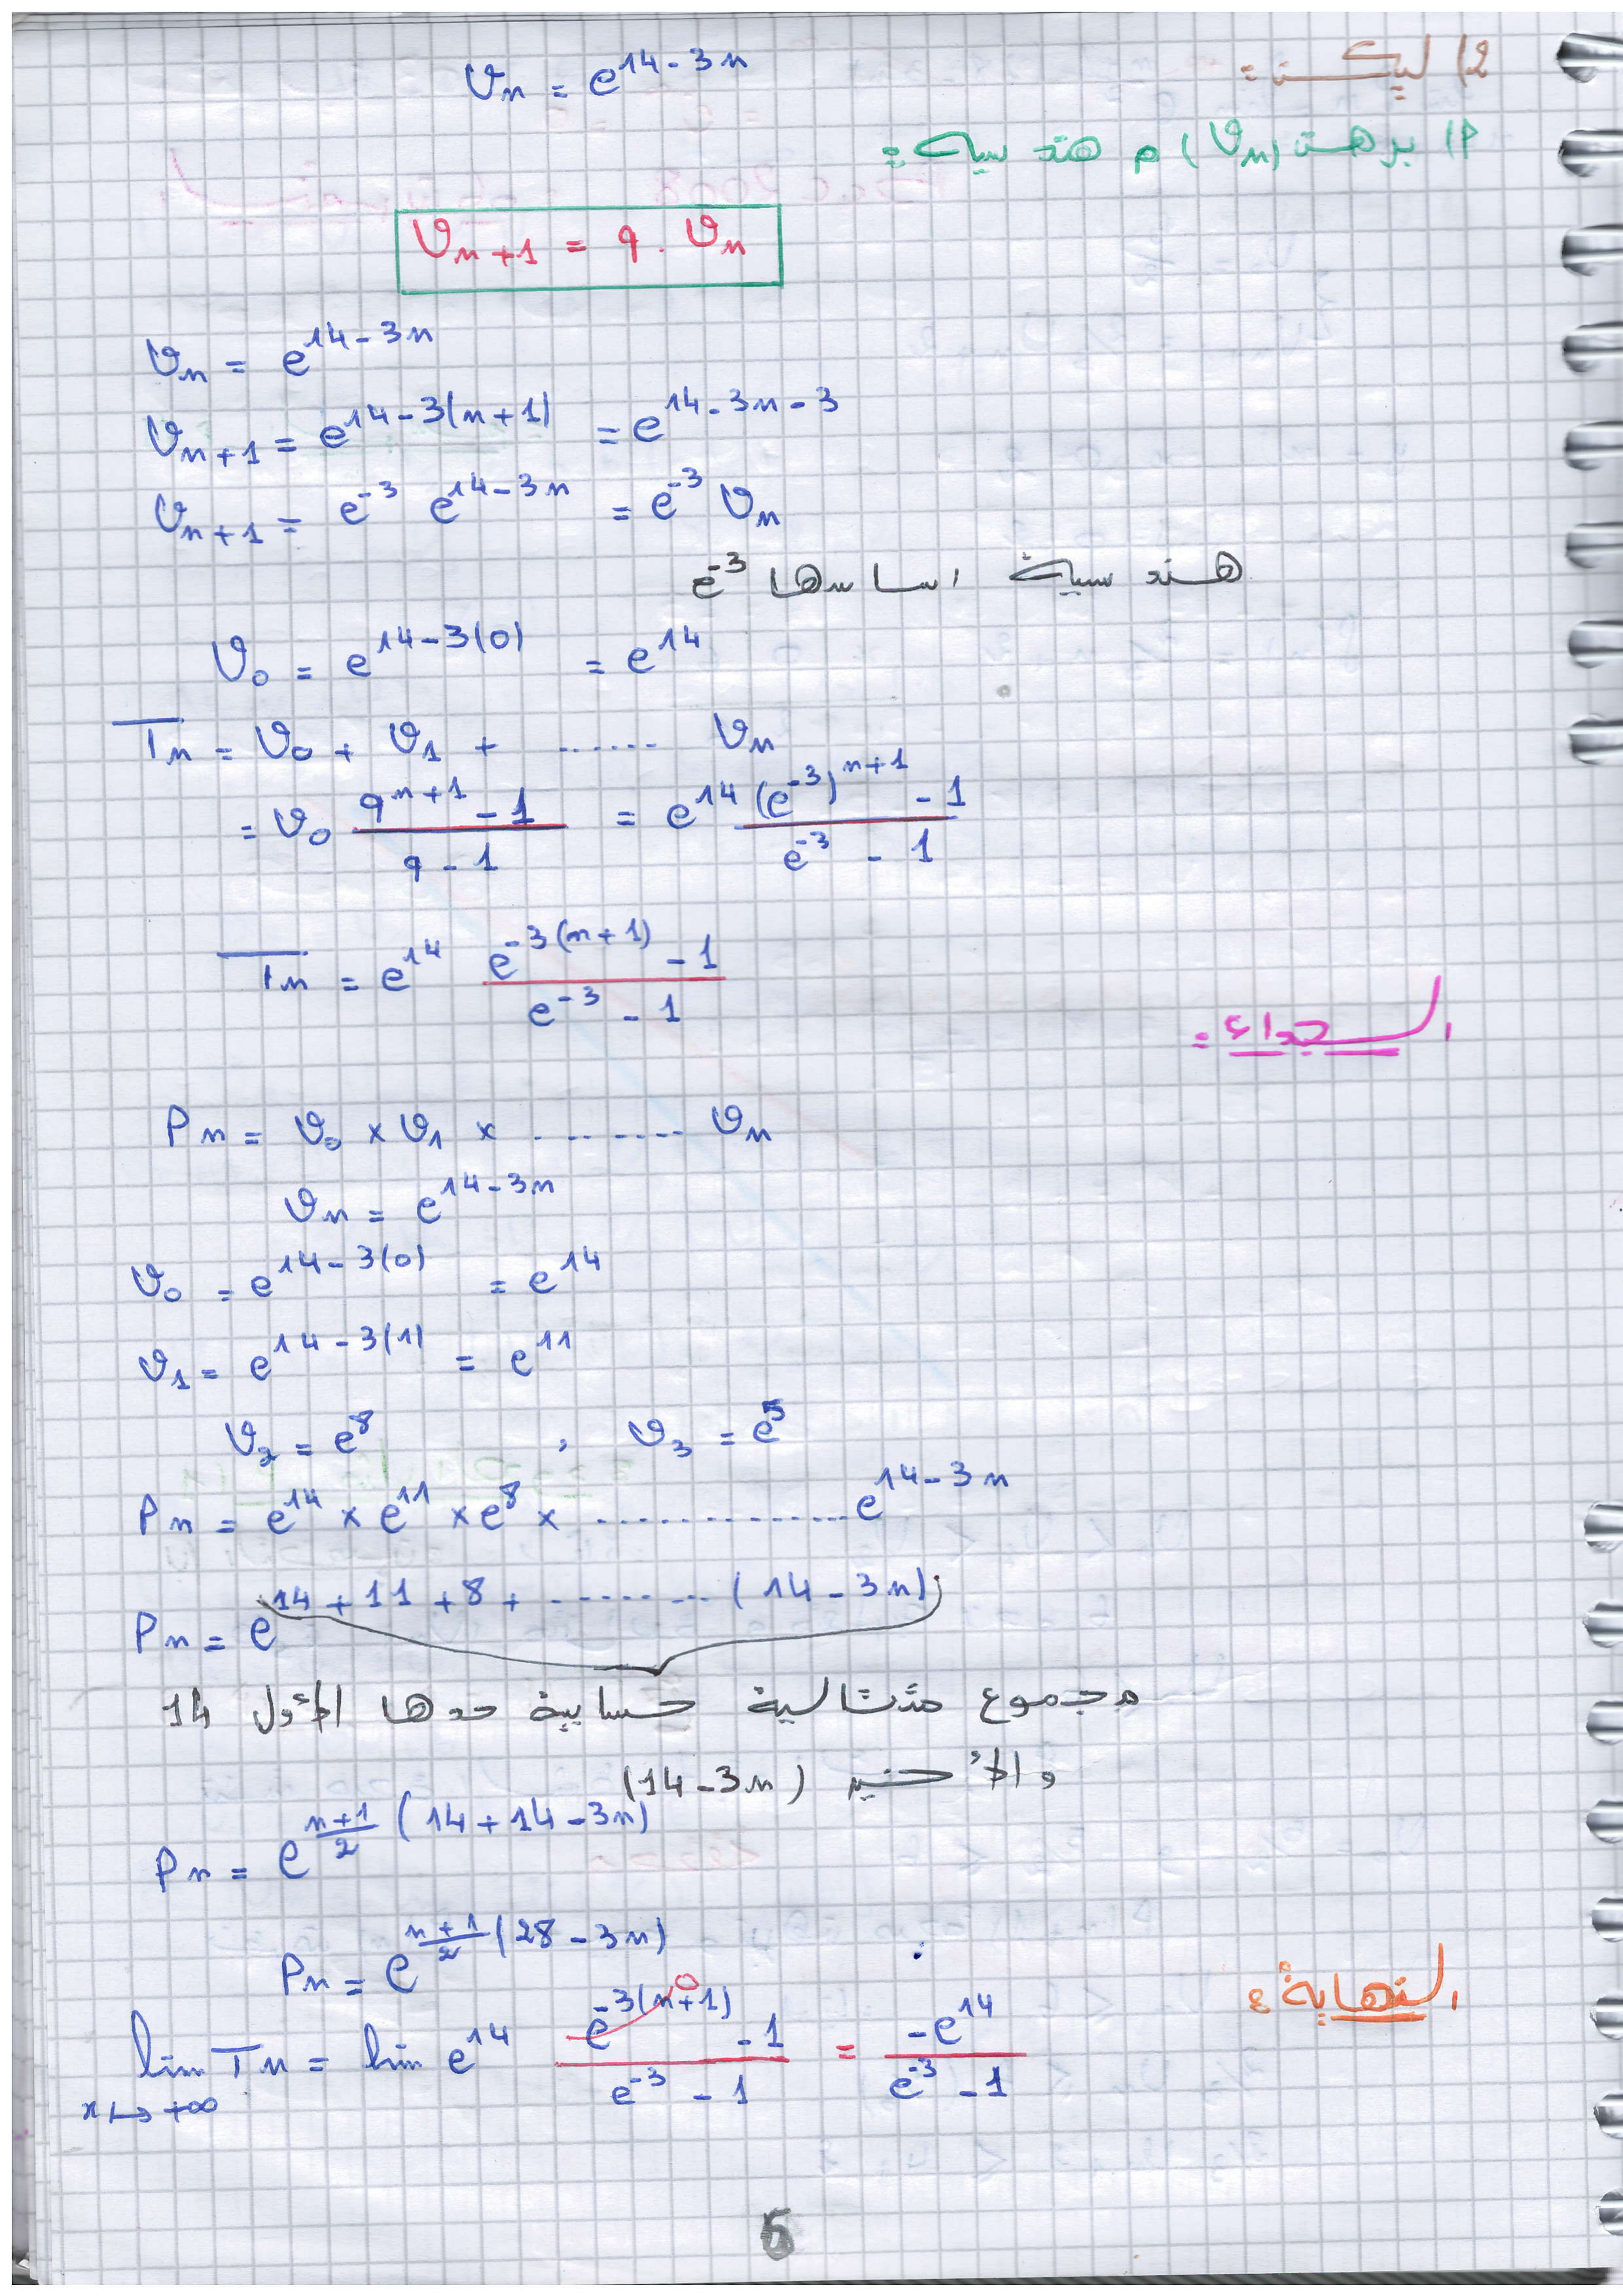 2) ليكن :
Vn = e^(14-3n)
P) برهن (Vn) م هندسية :
Vn+1 = q . Vn
Vn = e^(14-3n)
Vn+1 = e^(14-3(n+1)) = e^(14-3n-3)
Vn+1 = e^(-3) e^(14-3n) = e^(-3) Vn
هندسية اساسها e^(-3)
V0 = e^(14-3(0)) = e^14
Tn = V0 + V1 + ...... Vn
= V0 (q^(n+1) - 1)/(q - 1) = e^14 ((e^(-3))^(n+1) - 1)/(e^(-3) - 1)
Tn = e^14 (e^(-3(n+1)) - 1)/(e^(-3) - 1)
الجداء :
Pn = V0 × V1 × ......... Vn
Vn = e^(14-3n)
V0 = e^(14-3(0)) = e^14
V1 = e^(14-3(1)) = e^11
V2 = e^8 , V3 = e^5
Pn = e^14 × e^11 × e^8 × .............. e^(14-3n)
Pn = e^(14+11+8+ ......... (14-3n))
مجموع متتالية حسابية حدها الأول 14
والأخير (14-3n)
Pn = e^((n+1)/2 (14+14-3n))
Pn = e^((n+1)/2 (28-3n))
النهاية :
lim Tn = lim e^14 (e^(-3(n+1)) - 1)/(e^(-3) - 1) = -e^14/(e^(-3) - 1)
x↦+∞
0
6